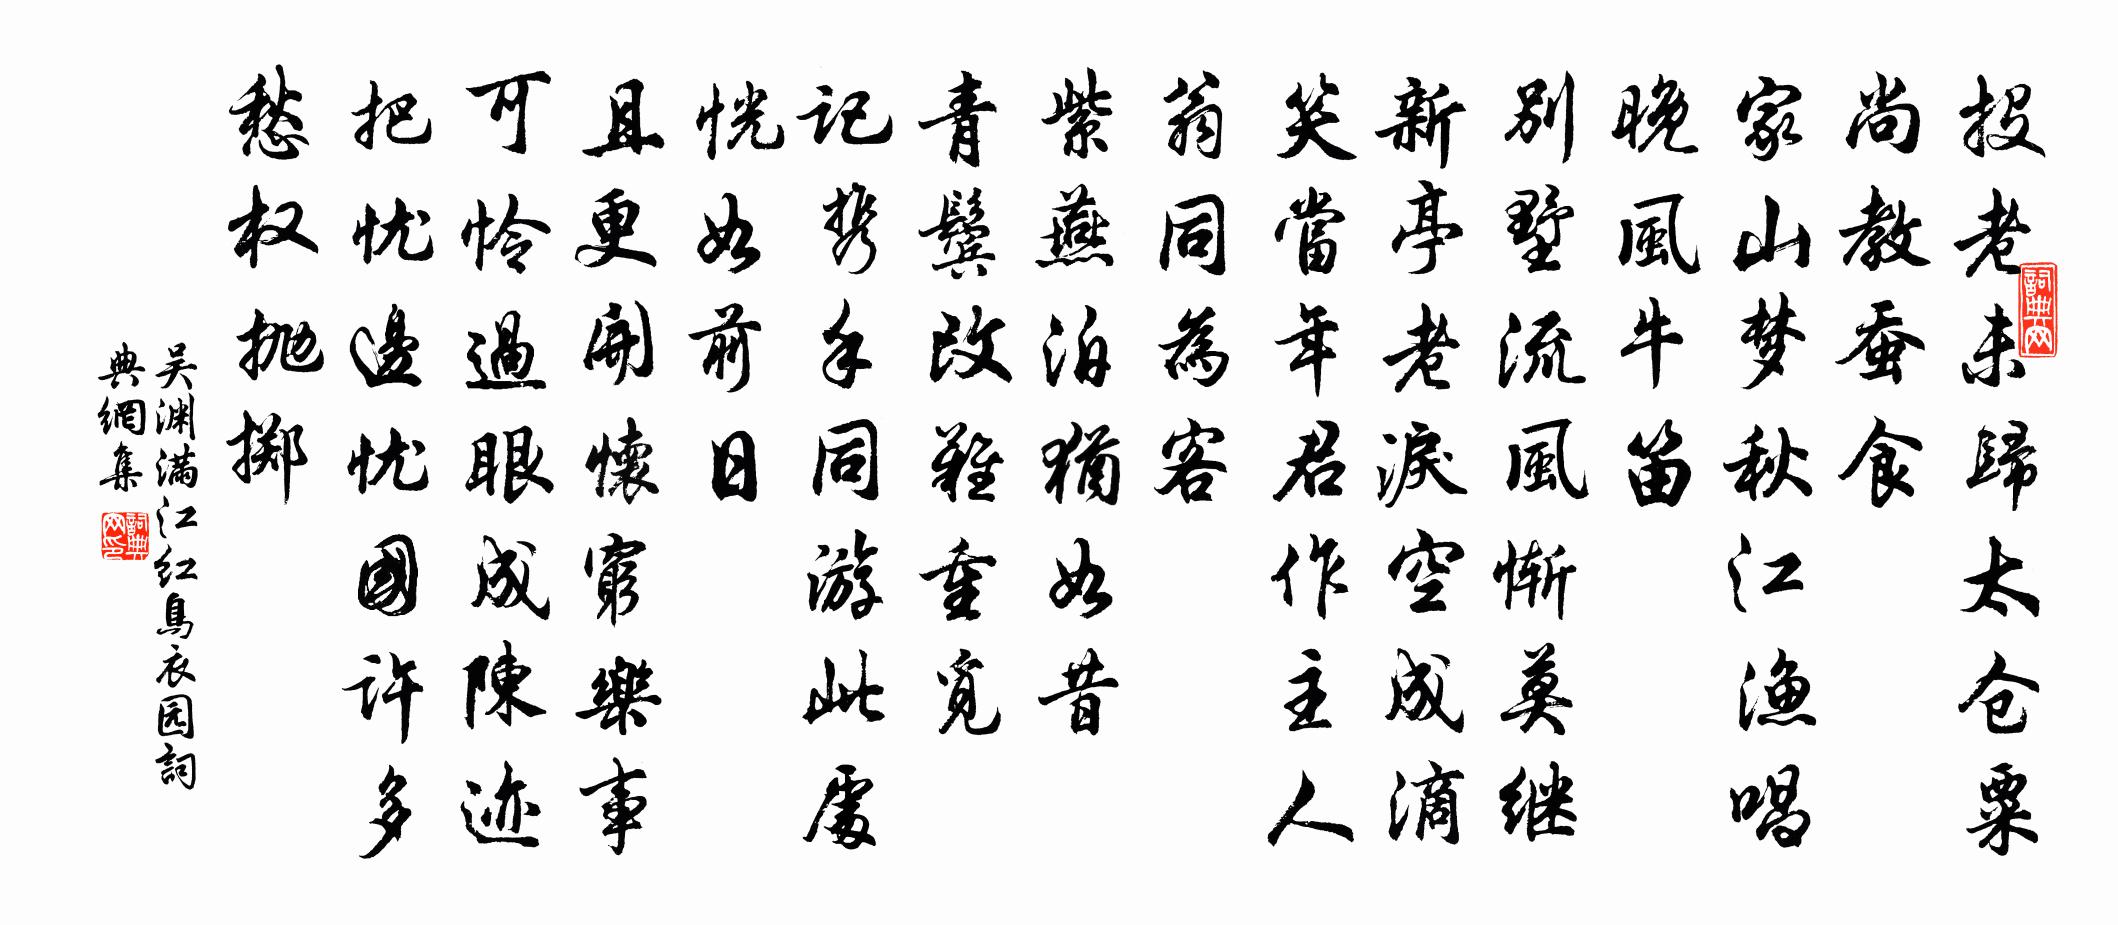 投老未歸太仓粟
尚教蚕食
家山梦秋江渔唱
晚風牛笛
别墅流風惭莫继
新亭老淚空成滴
笑當年君作主人
翁同為客
紫燕泊犹如昔
青鬓改難重觅
记携手同游此處
恍如前日
且更開懷窮樂事
可怜過眼成陳迹
把忧邊忧國許多
愁权抛掷
吴渊满江红烏衣园詞
典網集
詞典网
詞典网印